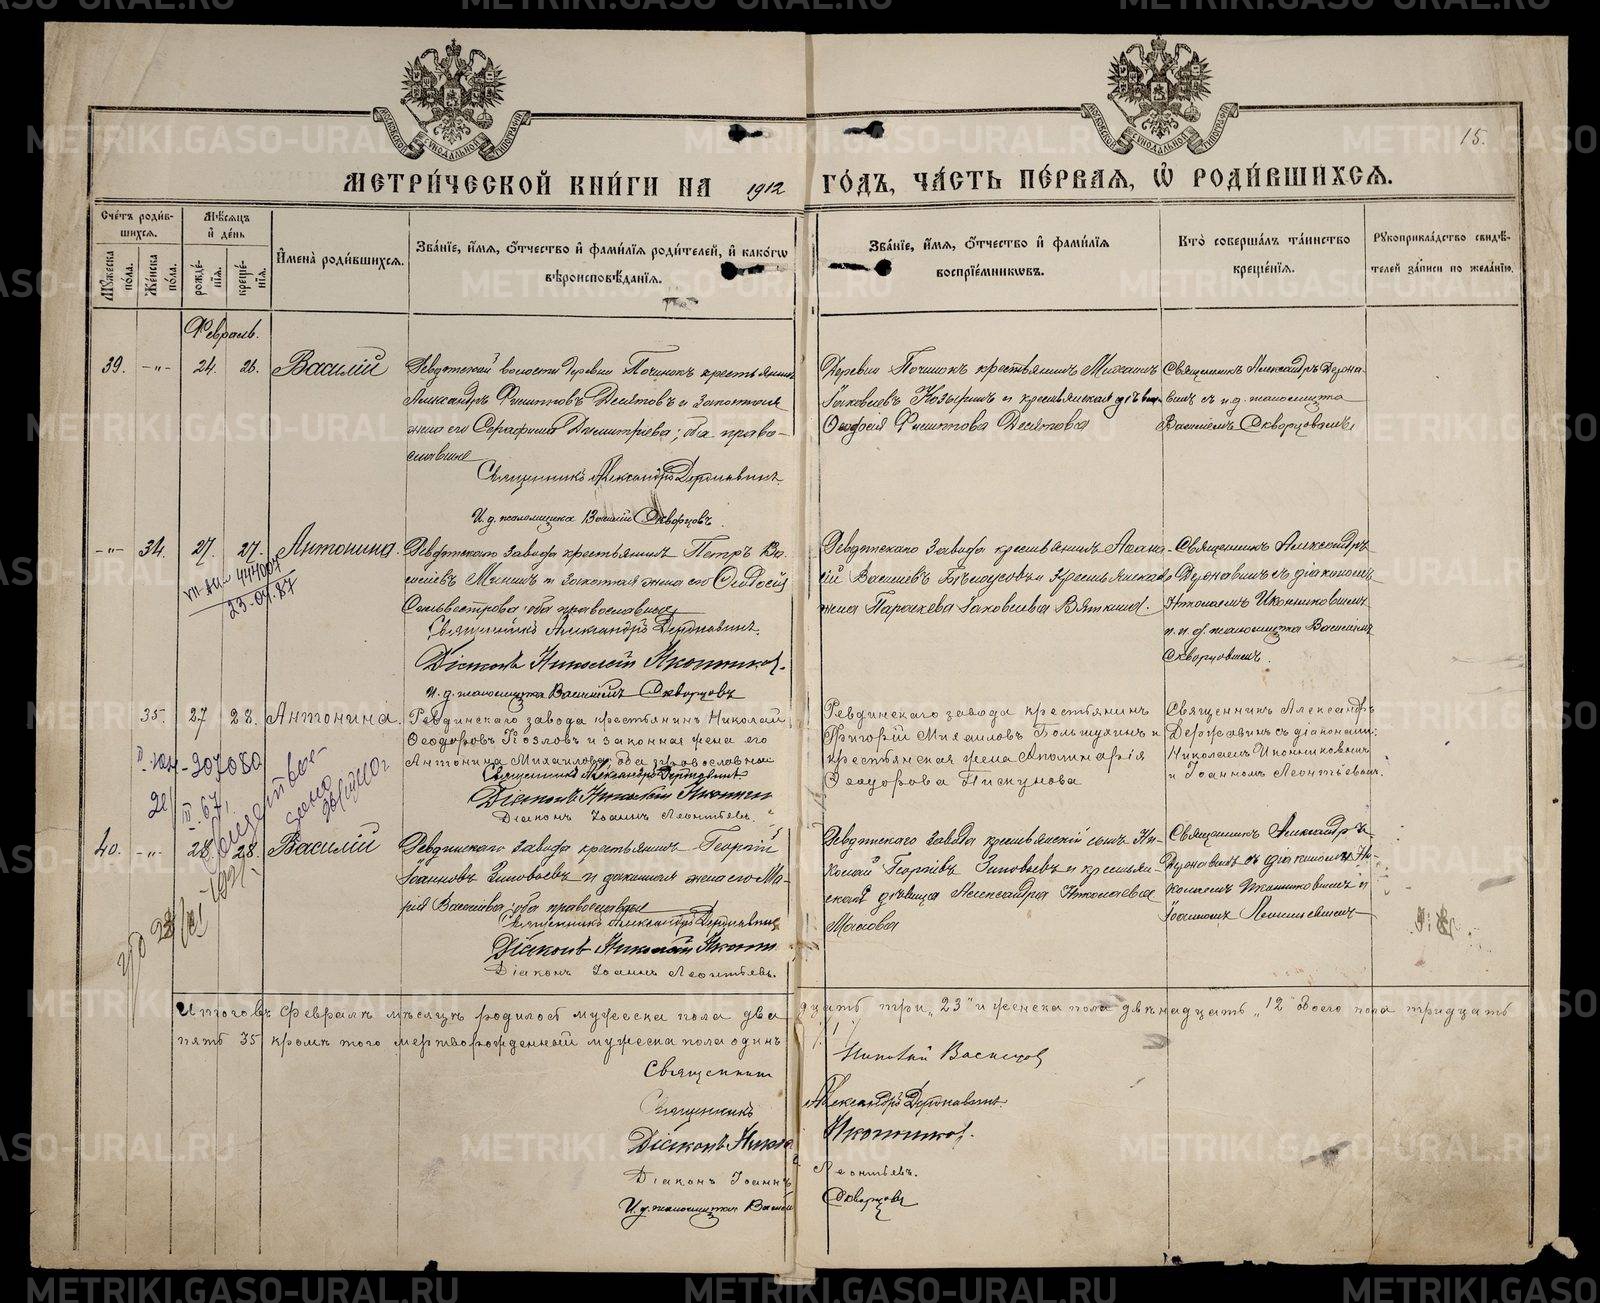 МОСКОВСКОЙ СѴНОДАЛЬНОЙ ТИПОГРАФІИ
МОСКОВСКОЙ СѴНОДАЛЬНОЙ ТИПОГРАФІИ
15.
МЕТРИ́ЧЕСКОЙ КНИ́ГИ НА 1912 ГО́ДЪ, ЧА́СТЬ ПЕ́РВАЯ, Ѽ РОДИ́ВШИХСЯ.
Сче́тъ роди́в-
шихся.
Мѣ́сяцъ
и҆ де́нь
Мꙋ́жеска по́ла.
Же́нска по́ла.
рожде́-
нїя.
креще́-
нїя.
И҆мена̀ роди́вшихся.
Зва́нїе, и҆́мя, ѻ҆́тчество и҆ фами́лїя роди́телей, и҆ како́гѡ
вѣроисповѣ́данїя.
Зва́нїе, и҆́мя, ѻ҆́тчество и҆ фами́лїя
воспрїе́мникѡвъ.
Кто̀ соверша́лъ та́инство
креще́нїя.
Рꙋкоприкла́дство свидѣ́-
телей за́писи по жела́нїю.
Февраль.
39. -"- 24. 26. Василій
Ревдинской волости деревни Починокъ крестьянинъ
Александръ Филипповъ Десятовъ и законная
жена его Серафима Димитріева; оба право-
славные
Священникъ Александръ Державинъ.
И. д. псаломщика Василій Скворцовъ.
Деревни Починокъ крестьянинъ Михаилъ
Яковлевъ Козыринъ и крестьянская дѣвица
Ѳеодосія Филиппова Десятова
Священникъ Александръ Держа-
винъ съ и.д. псаломщика
Василіемъ Скворцовымъ
-"- 34. 27. 27. Антонина.
23-04.87
Ревдинскаго завода крестьянинъ Петръ Ва-
сильевъ и законная жена его Ѳеодосія
Сильвестрова оба православные
Священникъ Александръ Державинъ.
Діаконъ Николай Иконниковъ.
И. д. псаломщика Василій Скворцовъ
Ревдинскаго завода крестьянинъ Аѳана-
сій Васильевъ Бѣлоусовъ и крестьянская
жена Параскева Яковлева Вяткина.
Священникъ Александръ
Державинъ съ діакономъ
Николаемъ Иконниковымъ
и и. д. псаломщика Василіемъ
Скворцовымъ.
35. 27 28. Антонина.
207080
Ревдинскаго завода крестьянинъ Николай
Ѳеодоровъ Козловъ и законная жена его
Антонина Михайлова, оба православные
Священникъ Александръ Державинъ
Діаконъ Николай Иконник
Діаконъ Іоаннъ Леонтьевъ.
Ревдинскаго завода крестьянинъ
Григорій Михаиловъ и
крестьянская жена Аполинарія
Ѳеодорова Пискунова
Священникъ Александръ
Державинъ съ діаконами:
Николаемъ Иконниковымъ
и Іоанномъ Леонтьевымъ.
40. -"- 28. 28. Василій
Ревдинскаго завода крестьянинъ Георгій
Іоанновъ Зиновьевъ и законная жена его Ма-
рія Васильева оба православные
Священникъ Александръ Державинъ
Діаконъ Николай Иконн
Діаконъ Іоаннъ Леонтьевъ.
Ревдинскаго завода крестьянскій сынъ Ни-
колай Георгіевъ Зиновьевъ и крестьян-
ская дѣвица Александра Николаева
Маслова
Священникъ Александръ
Державинъ съ діаконами Ни-
колаемъ Иконниковымъ и
Іоанномъ Леонтьевымъ
Итого въ Февралѣ мѣсяцѣ родилось мужеска пола два
дцать три „23" и женска пола двѣнадцать „12" обоего пола тридцать
пять 35 кромѣ того мертворожденный мужеска пола одинъ
Священникъ Николай
Священникъ Александръ Державинъ.
Діаконъ Никол Иконниковъ.
Діаконъ Іоаннъ Леонтьевъ.
И. д. псаломщика Василій Скворцовъ
METRIKI.GASO-URAL.RU